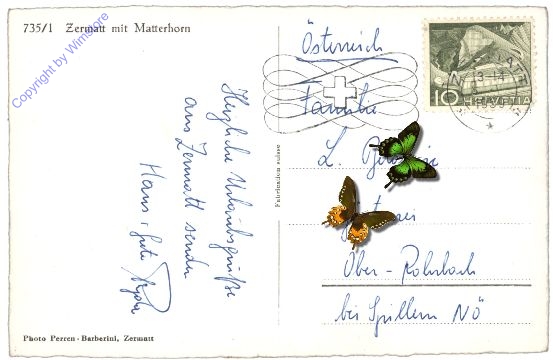 735/1 Zermatt mit Matterhorn
Copyright by Wimstore
Herzliche Urlaubsgrüße
aus Zermatt senden
Hans u. Grete
Österreich
Familie
L.
Ober-Rohrbach
bei Spillern NÖ
10 HELVETIA
13-14
Fabrikation suisse
Photo Perren-Barberini, Zermatt